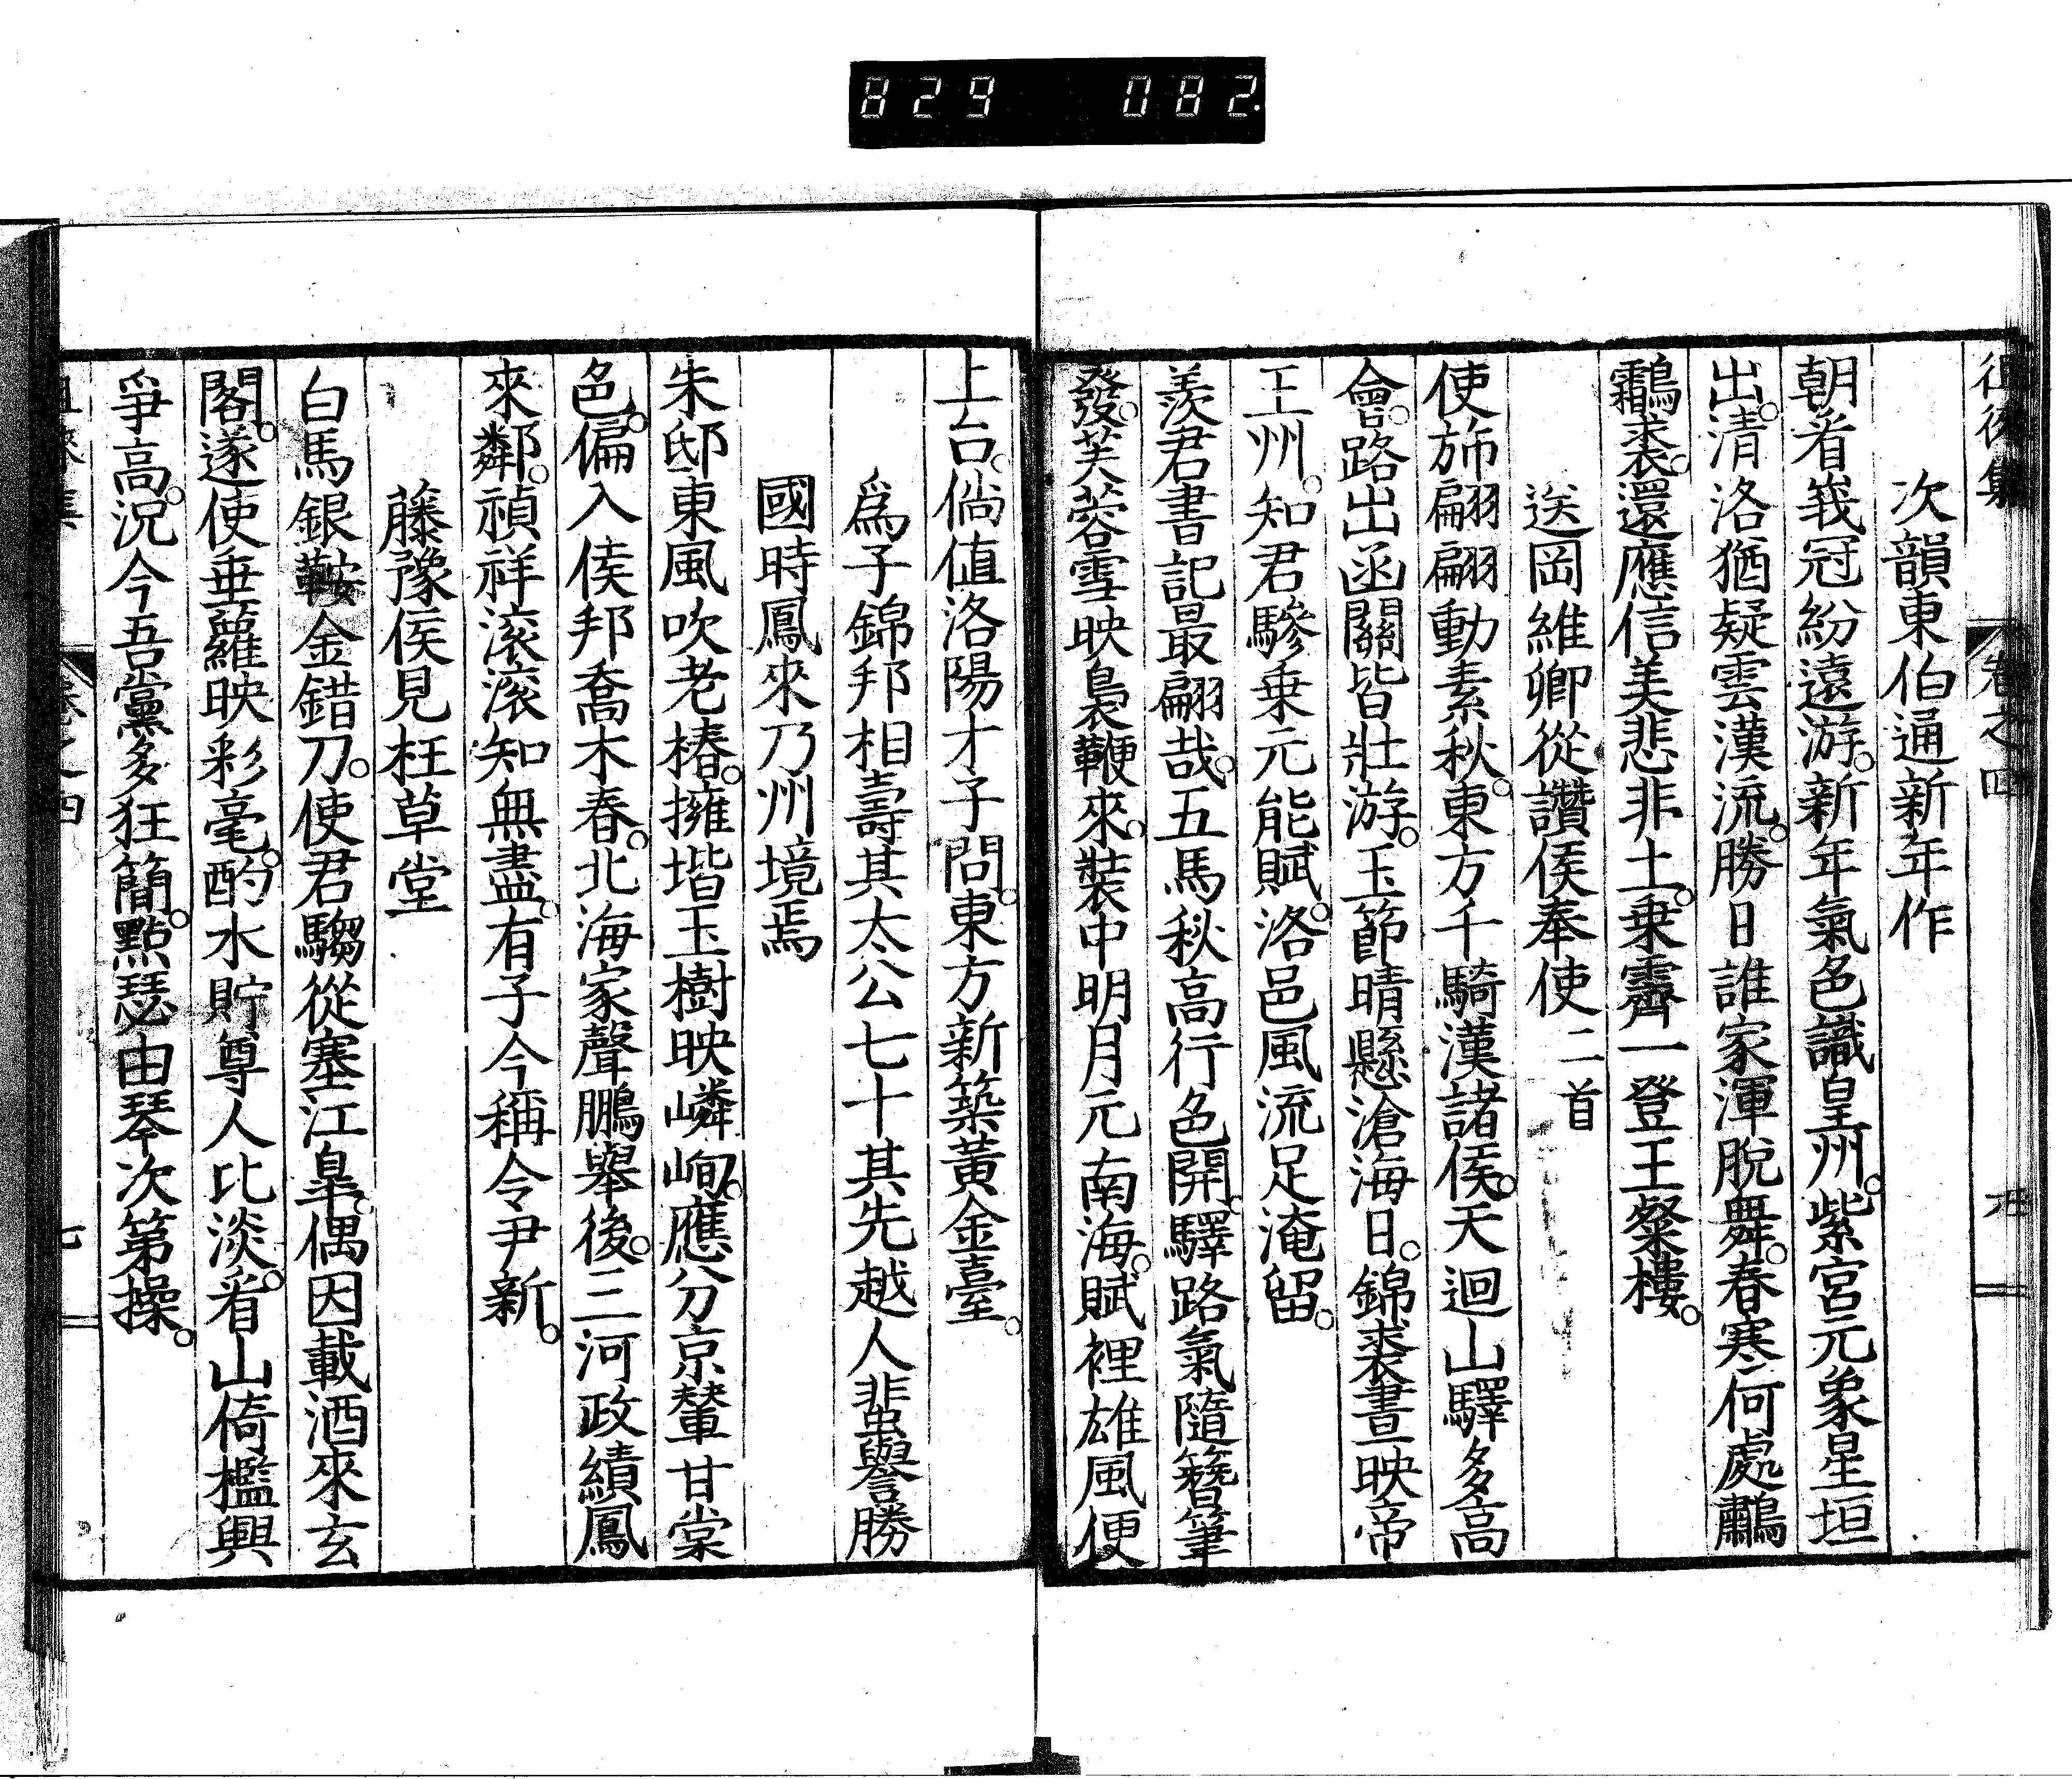 829 082
次韻東伯通新年作
朝看峩冠紛遠游。新年氣色識皇州。紫宮元象星垣
出。清洛猶疑雲漢流。勝日誰家渾脫舞。春寒何處鸘
鷫裘。還應信美悲非土。乗霽一登王粲樓。
送岡維卿從讚侯奉使二首
使斾翩翩動素秋。東方千騎漢諸侯。天迴山驛多高
會。路出函關皆壯游。玉節晴懸滄海日。錦裘晝映帝
王州。知君驂乗元能賦。洛邑風流足淹留。
羨君書記最翩哉。五馬秋高行色開。驛路氣隨簪筆
發。芙蓉雪映裊鞭來。裝中明月元南海。賦裡雄風便
上台。倘值洛陽才子問。東方新築黃金臺。
爲子錦邦相壽其太公七十其先越人蜚譽勝
國時鳳來乃州境焉
朱邸東風吹老椿。擁堦玉樹映嶙峋。應分京輦甘棠
色。偏入侯邦喬木春。北海家聲鵬舉後。三河政績鳳
來鄰。禎祥滚滚知無盡。有子今稱令尹新。
藤豫侯見枉草堂
白馬銀鞍金錯刀。使君騶從塞江皐。偶因載酒來玄
閣。遂使垂蘿映彩毫。酌水貯尊人比淡。看山倚檻興
爭高。況今吾黨多狂簡。點瑟由琴次第操。